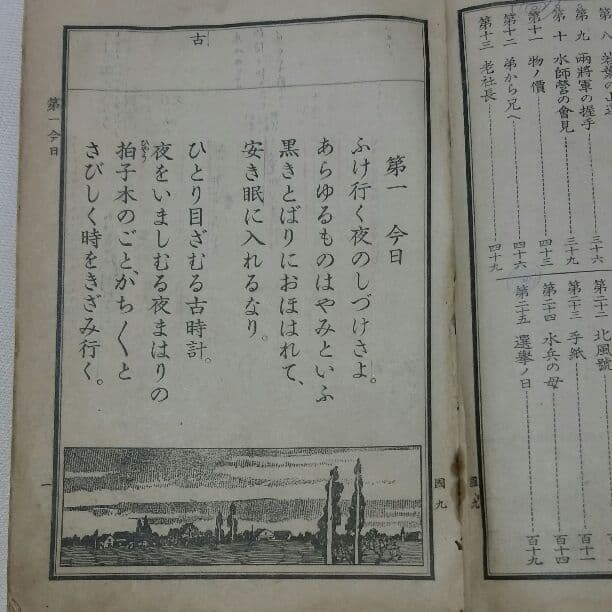 第九 兩將軍の握手 三十六
第十 水師營の會見 三十九
第十一 物ノ價 四十三
第十二 弟から兄へ 四十六
第十三 老社長 四十九
第二十二 北風號
第二十三 手紙 百十一
第二十四 水兵の母 百十四
第二十五 選擧ノ日 百十九
國九
國九
古
第一 今日
ふけ行く夜のしづけさよ。
あらゆるものはやみといふ
黒きとばりにおほはれて、
安き眠に入れるなり。
ひとり目ざむる古時計。
夜をいましむる夜まはりの
拍子木のごと、かち〱と
さびしく時をきざみ行く。
第一 今日
一